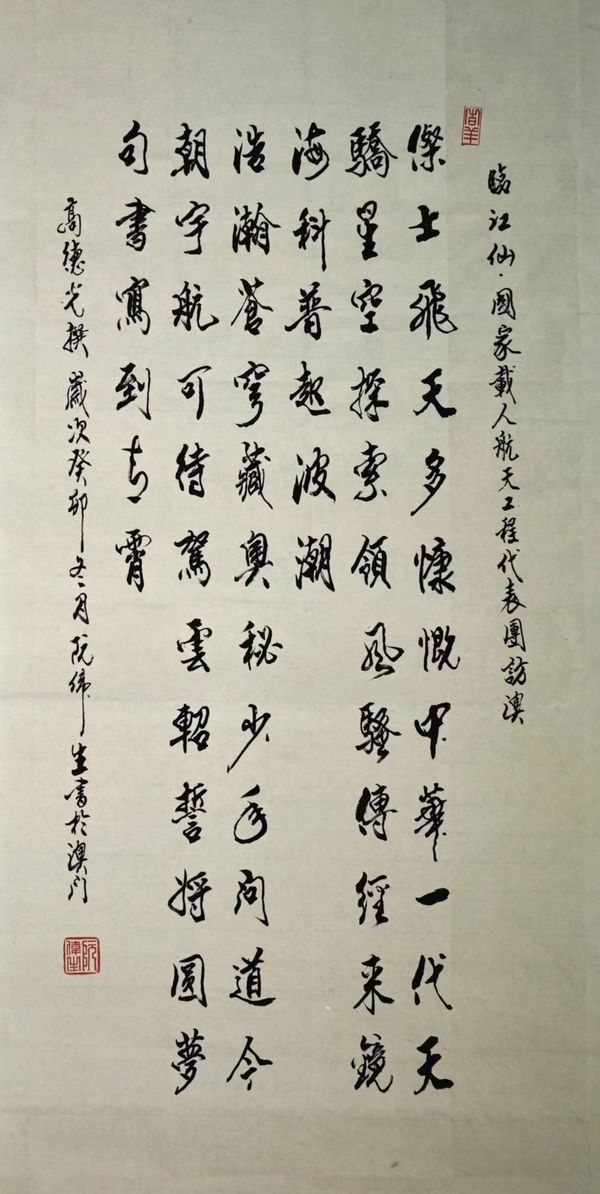 臨江仙·國家載人航天工程代表團訪澳
傑士飛天多慷慨中華一代天
驕星空探索領風騷傳經来鏡
海科普起波潮
浩瀚蒼穹藏奧秘少年問道今
朝宇航可待駕雲軺誓將圓夢
句書寫到青霄
高德光撰 歲次癸卯冬月阮偉生書於澳门
阮偉生